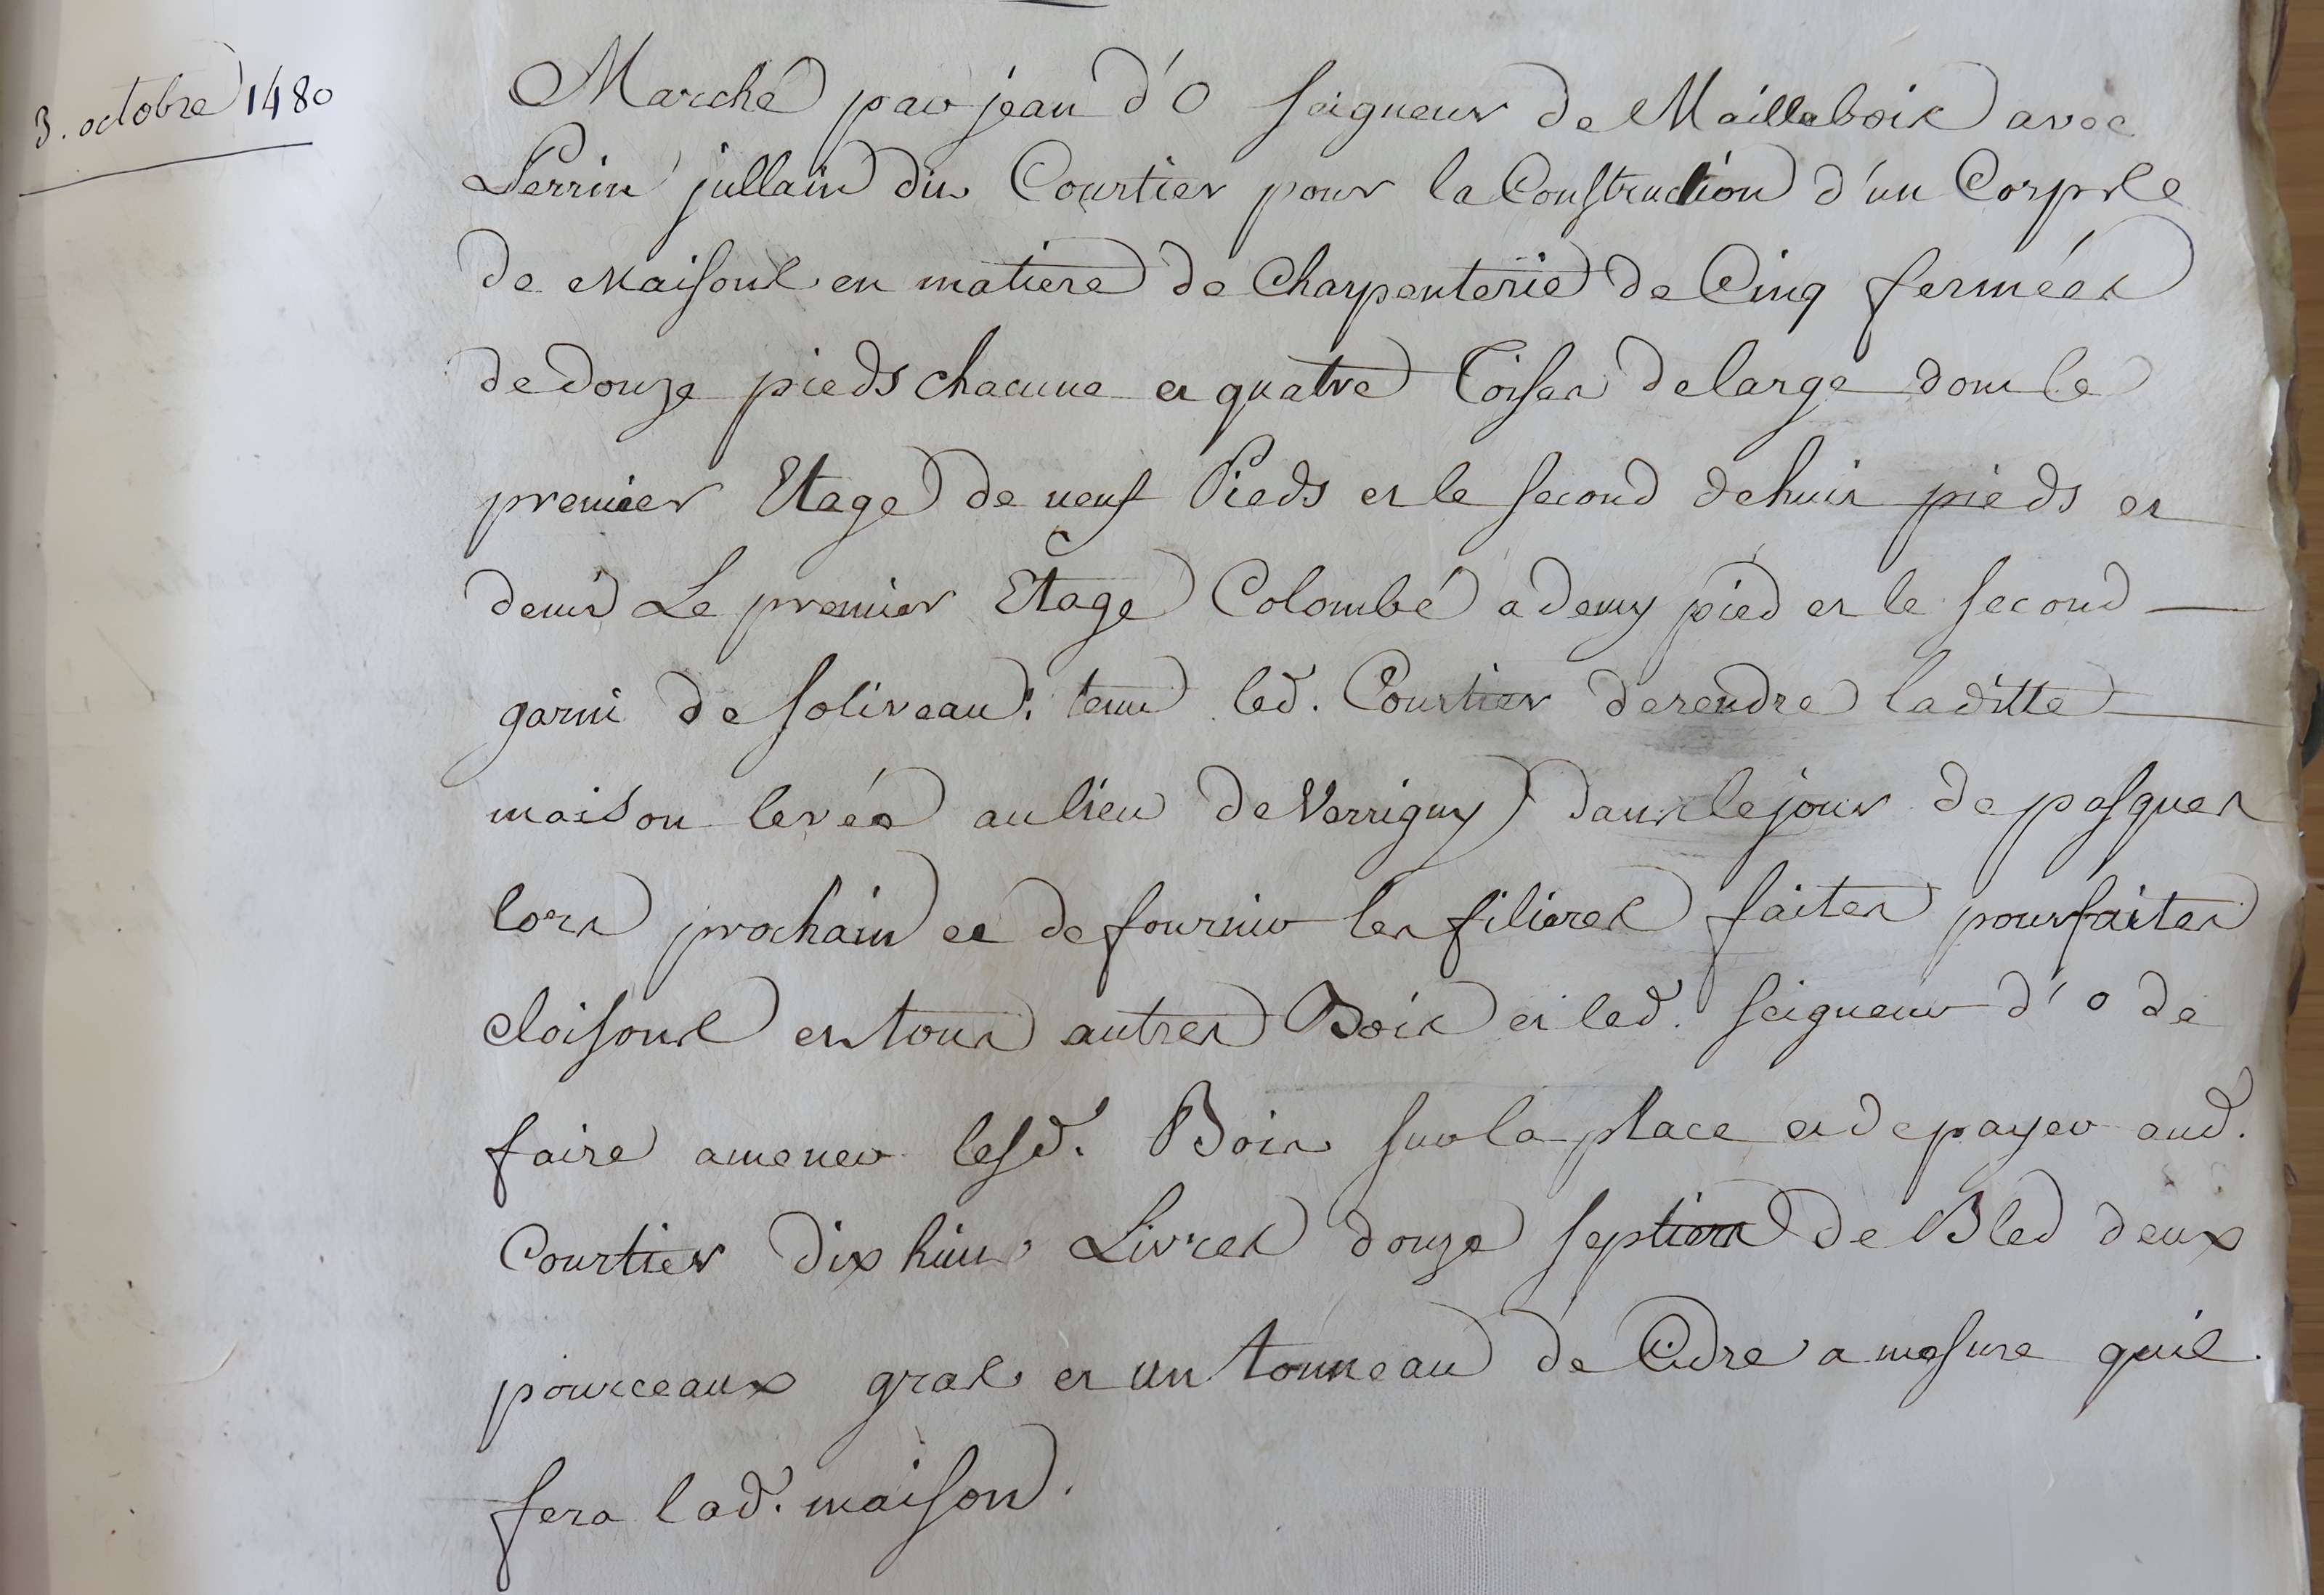 3. octobre 1480
Marché par jean d'O seigneur de Maillebois avec
Perrin jullain dit Courtier pour la Construction d'un Corps
de Maisons en matiere de Charpenterie de Cinq fermées
de douze pieds chacune et quatre Toises de large dont le
premier Etage de neuf Pieds et le second de huit pieds et
demi Le premier Etage Colombé a demy pied et le second
garni de soliveau: tenu led. Courtier de rendre laditte
maison levée au lieu de Verrigny dans le jour de pasques
lors prochain et de fournir les filieres faites pourfaites
cloisons et tous autres Bois et led. seigneur d'o de
faire amener lesd. Bois sur la place et de payer aud.
Courtier dix huit Livres douze septiers de Bled deux
pourceaux gras et un tonneau de Cidre a mesure quil
fera lad. maison.